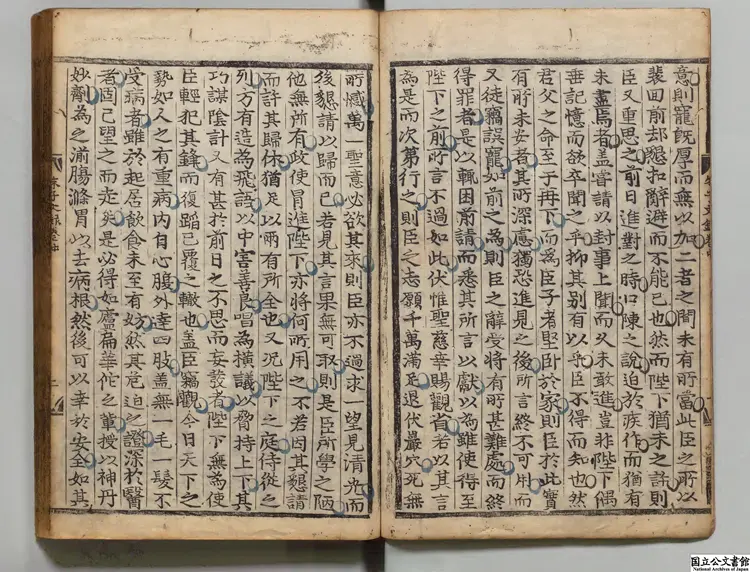 意則寵旣厚而無以加二者之間未有所當此臣之所以
裴回前却懇扣辭避而不能已也然而陛下猶未之許則
臣又重思之前日進對之時口陳之說迫於疾作而猶有
未盡焉者盖嘗請以封事上聞而久未敢進豈非陛下偶
垂記憶而欲卒聞之乎抑其別有以乎臣不得而知也然
君父之命至于再下而爲臣子者堅卧於家則臣於此實
有所未安者其所深慮獨恐進見之後所言終不可用而
又徒竊誤寵如前之爲則臣之辭受將有所甚難處而終
得罪者是以輒因前請而悉其所言以獻以爲雖使得至
陛下之前所言不過如此伏惟聖慈幸賜觀省若以其言
為是而次第行之則臣之志願千萬滿足退伏巖穴死無
所憾萬一聖意必欲其來則臣亦不過求一望見清光而
後懇請以歸而已若見其言果無可取則是臣所學之陋
他無所有政使冒進陛下亦將何所用之不若因其懇請
而許其歸休猶足以兩有所全也又况陛下之庭侍從之
列方有造為飛語以中害善良唱為橫議以脅持上下其
巧謀陰計又有甚於前日之不思而妄發者陛下無為使
臣輕犯其鋒而復蹈已覆之轍也盖臣竊觀今日天下之
勢如人之有重病内自心腹外達四肢盖無一毛一髮不
受病者雖於起居飮食未至有妨然其危迫之證深於醫
者固已望之而走矣是必得如盧扁華佗之軰授以神丹
妙劑為之湔腸滌胃以去病根然後可以幸於安全如其
朱子文錄卷中
国立公文書館
National Archives of Japan